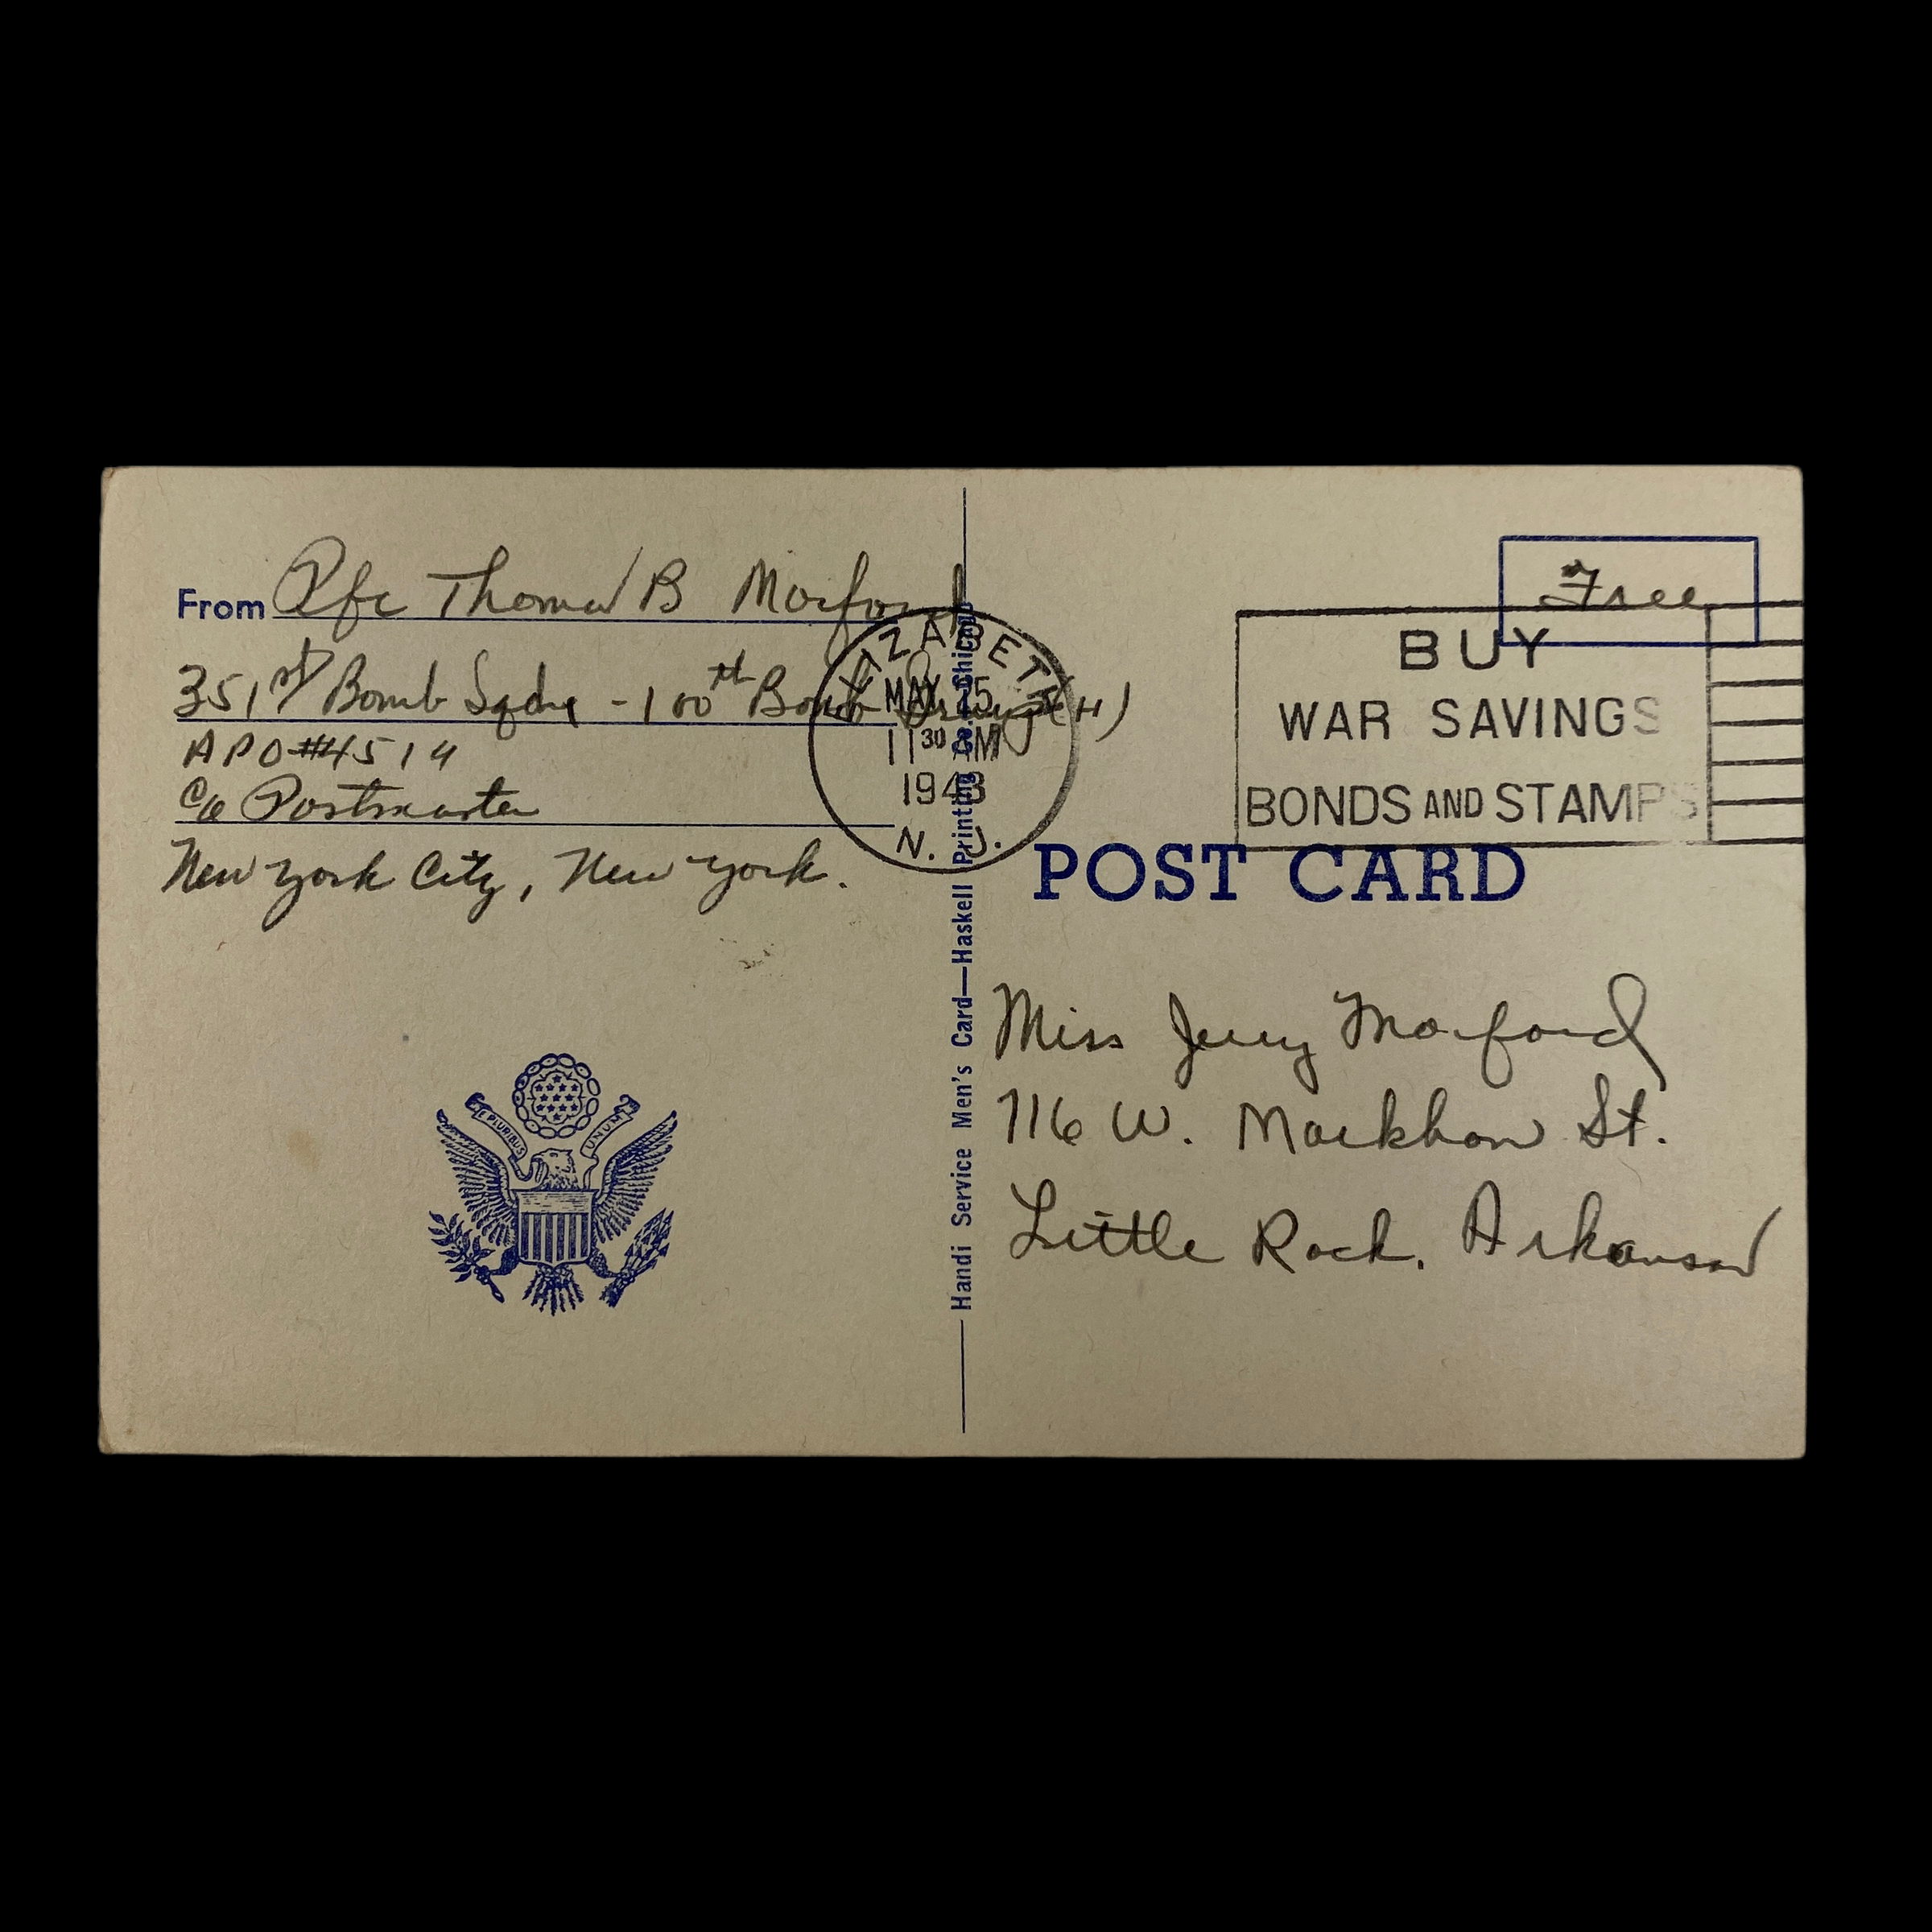 From Pfc Thomas B Morford
351st Bomb Sqdn - 100th Bomb Group (H)
APO #4514
c/o Postmaster
New York City, New York.
ELIZABETH
MAY 25
11 30 AM
1943
N. J.
Free
BUY
WAR SAVINGS
BONDS AND STAMPS
POST CARD
Miss Jerry Morford
716 W. Markham St.
Little Rock, Arkansas
E PLURIBUS UNUM
Handi Service Men's Card—Haskell Printing Co. Chicago